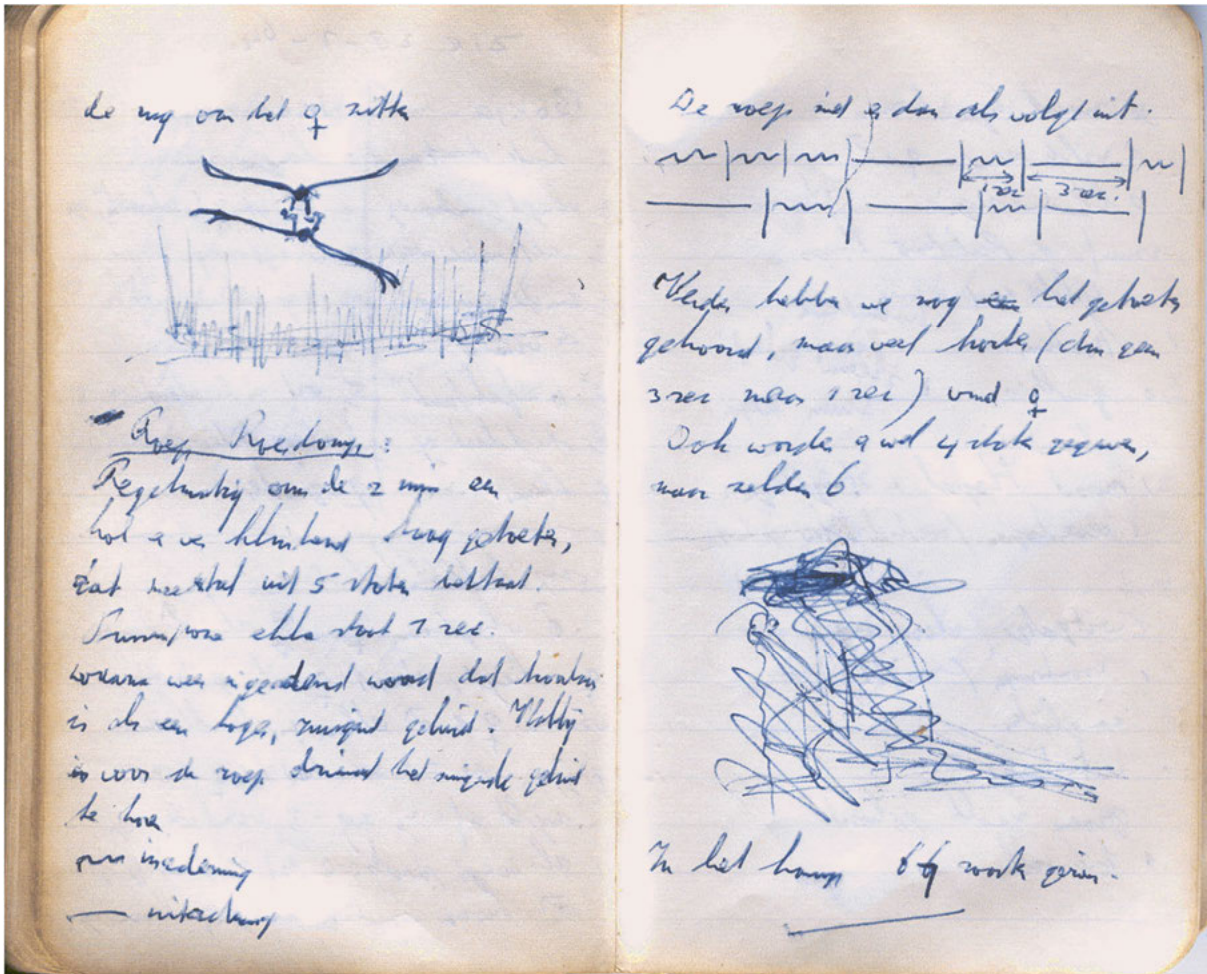 de rug van het ♀ zitten
Roep Roerdomp:
Regelmatig om de 2 min een
hol ver klinkend laag getoeter,
dat meestal uit 5 stoten bestaat.
duurt 1 sec.
waarna weer ingeademd wordt dat hoorbaar
is als een hoger, zuigend geluid.
is voor de roep driemaal het zuigende geluid
te horen
inademing
— uitademing
De roep ziet er dan als volgt uit.
1 sec 3 sec.
Verder hebben we nog een het getoeter
gehoord, maar veel korter (dan geen
3 sec maar 1 sec) v.d. ♀
Ook worden er wel 4 stoten gegeven,
maar zelden 6
In het kamp 64 gezien.